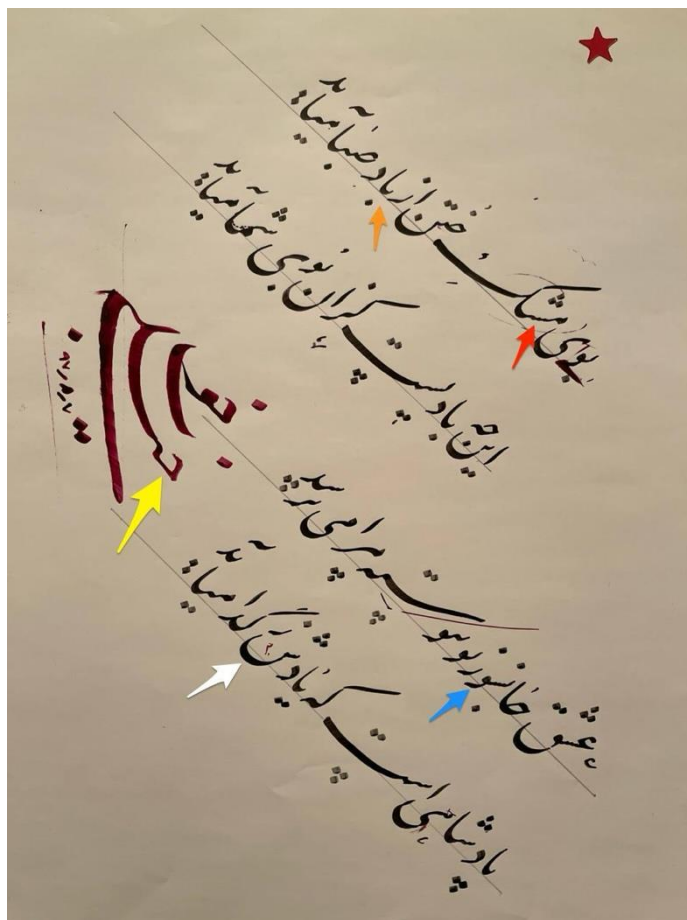 بوی مشک ختن از باد صبا میآید
این چه بادیست کزان بوی شما میآید
عشق جانسوز تو پیوسته مرا می پرسد
پادشاهی است که یادش ز گدا میآید